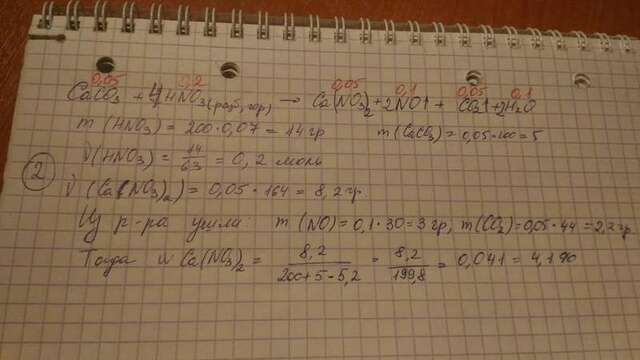 0,05 0,2 0,05 0,1 0,05 0,1
CaCO3 + 4HNO3(разб, гор) → Ca(NO3)2 + 2NO↑ + CO2↑ + 2H2O
m (HNO3) = 200·0,07 = 14 гр m (CaCO3) = 0,05·100 = 5
ν(HNO3) = 14/63 = 0,2 моль
② ν (Ca(NO3)2) = 0,05·164 = 8,2 гр
Из р-ра ушли: m (NO) = 0,1·30 = 3 гр, m(CO2) = 0,05·44 = 2,2 гр
Тогда w Ca(NO3)2 = 8,2/200+5-5,2 = 8,2/199,8 = 0,041 = 4,1%